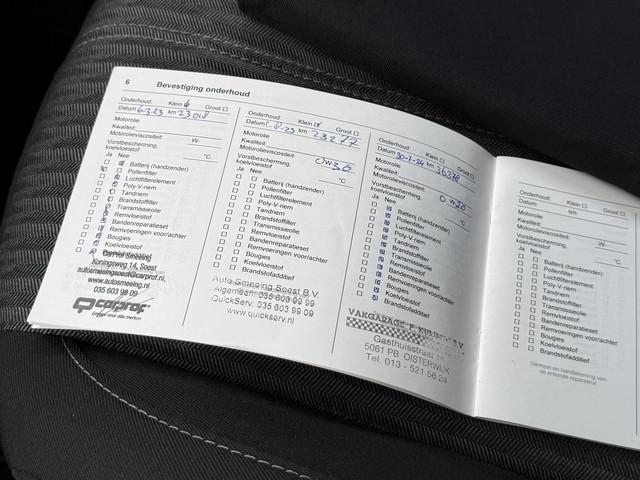 6 Bevestiging onderhoud
Onderhoud: Klein Groot
Datum 6-3-23 km 23018
Motorolie
Kwaliteit:
Motorolieviscositeit: W-
Vorstbescherming, koelvloeistof °C
Ja Nee
Batterij (handzender)
Pollenfilter
Luchtfilterelement
Poly-V-riem
Tandriem
Brandstoffilter
Transmissieolie
Remvloeistof
Bandenreparatieset
Remvoeringen voor/achter
Bougies
Koelvloeistof
Koningsweg 14, Soest
autosmeeing@carprof.nl,
www.autosmeeing.nl
035 603 99 09
carprof
Onderhoud: Klein Groot
Datum km 23277
Motorolie
Kwaliteit:
Motorolieviscositeit: 0W30
Vorstbescherming, koelvloeistof °C
Ja Nee
Batterij (handzender)
Pollenfilter
Luchtfilterelement
Poly-V-riem
Tandriem
Brandstoffilter
Transmissieolie
Remvloeistof
Bandenreparatieset
Remvoeringen voor/achter
Bougies
Koelvloeistof
Brandstofadditief
Auto Smeeing Soest B.V.
Algemeen: 035 603 99 09
QuickServ: 035 603 99 09
www.quickserv.nl
Onderhoud: Klein Groot
Datum 30-7-24 km 36378
Motorolie
Kwaliteit:
Motorolieviscositeit: 0 W 20
Vorstbescherming, koelvloeistof °C
Ja Nee
Batterij (handzender)
Pollenfilter
Luchtfilterelement
Poly-V-riem
Tandriem
Brandstoffilter
Transmissieolie
Remvloeistof
Bandenreparatieset
Remvoeringen voor/achter
Bougies
Koelvloeistof
Brandstofadditief
VAKGARAGE
Gasthuisstraat
5061 PB OISTERWIJK
Tel. 013 - 521 56 24
Onderhoud: Klein Groot
Datum km:
Motorolie
Kwaliteit:
Motorolieviscositeit: W-
Vorstbescherming, koelvloeistof °C
Ja Nee
Batterij (handzender)
Pollenfilter
Luchtfilterelement
Poly-V-riem
Tandriem
Brandstoffilter
Transmissieolie
Remvloeistof
Bandenreparatieset
Remvoeringen voor/achter
Bougies
Koelvloeistof
Brandstofadditief
Stempel en handtekening van
de erkende reparateur